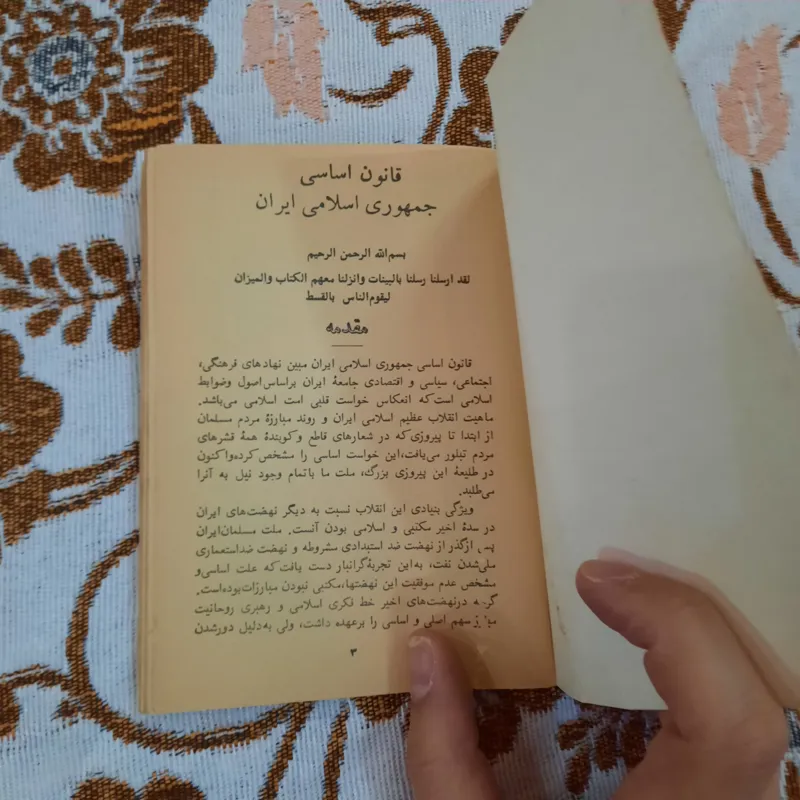 قانون اساسی
جمهوری اسلامی ایران
بسم‌الله الرحمن الرحیم
لقد ارسلنا رسلنا بالبینات وانزلنا معهم الکتاب والمیزان
لیقوم‌الناس بالقسط
مقدمه
قانون اساسی جمهوری اسلامی ایران مبین نهادهای فرهنگی،
اجتماعی، سیاسی و اقتصادی جامعهٔ ایران براساس‌اصول وضوابط
اسلامی است‌که انعکاس خواست قلبی امت اسلامی می‌باشد.
ماهیت انقلاب عظیم اسلامی ایران و روند مبارزهٔ مردم مسلمان
از ابتدا تا پیروزی‌که در شعارهای قاطع و کوبندهٔ همهٔ قشرهای
مردم تبلور می‌یافت،این خواست اساسی را مشخص کرده‌واکنون
در طلیعهٔ این پیروزی بزرگ، ملت ما باتمام وجود نیل به آنرا
می‌طلبد.
ویژگی بنیادی این انقلاب نسبت به دیگر نهضت‌های ایران
در سدهٔ اخیر مکتبی و اسلامی بودن آنست. ملت مسلمان‌ایران
پس ازگذر از نهضت ضد استبدادی مشروطه و نهضت ضداستعماری
ملی‌شدن نفت، به‌این تجربهٔ‌گرانبار دست یافت‌که علت اساسی‌و
مشخص عدم موفقیت این نهضتها،مکتبی نبودن مبارزات‌بوده‌است.
گرچه درنهضت‌های اخیر خط فکری اسلامی و رهبری روحانیت
سهم اصلی و اساسی را برعهده داشت، ولی به‌دلیل دورشدن
۳